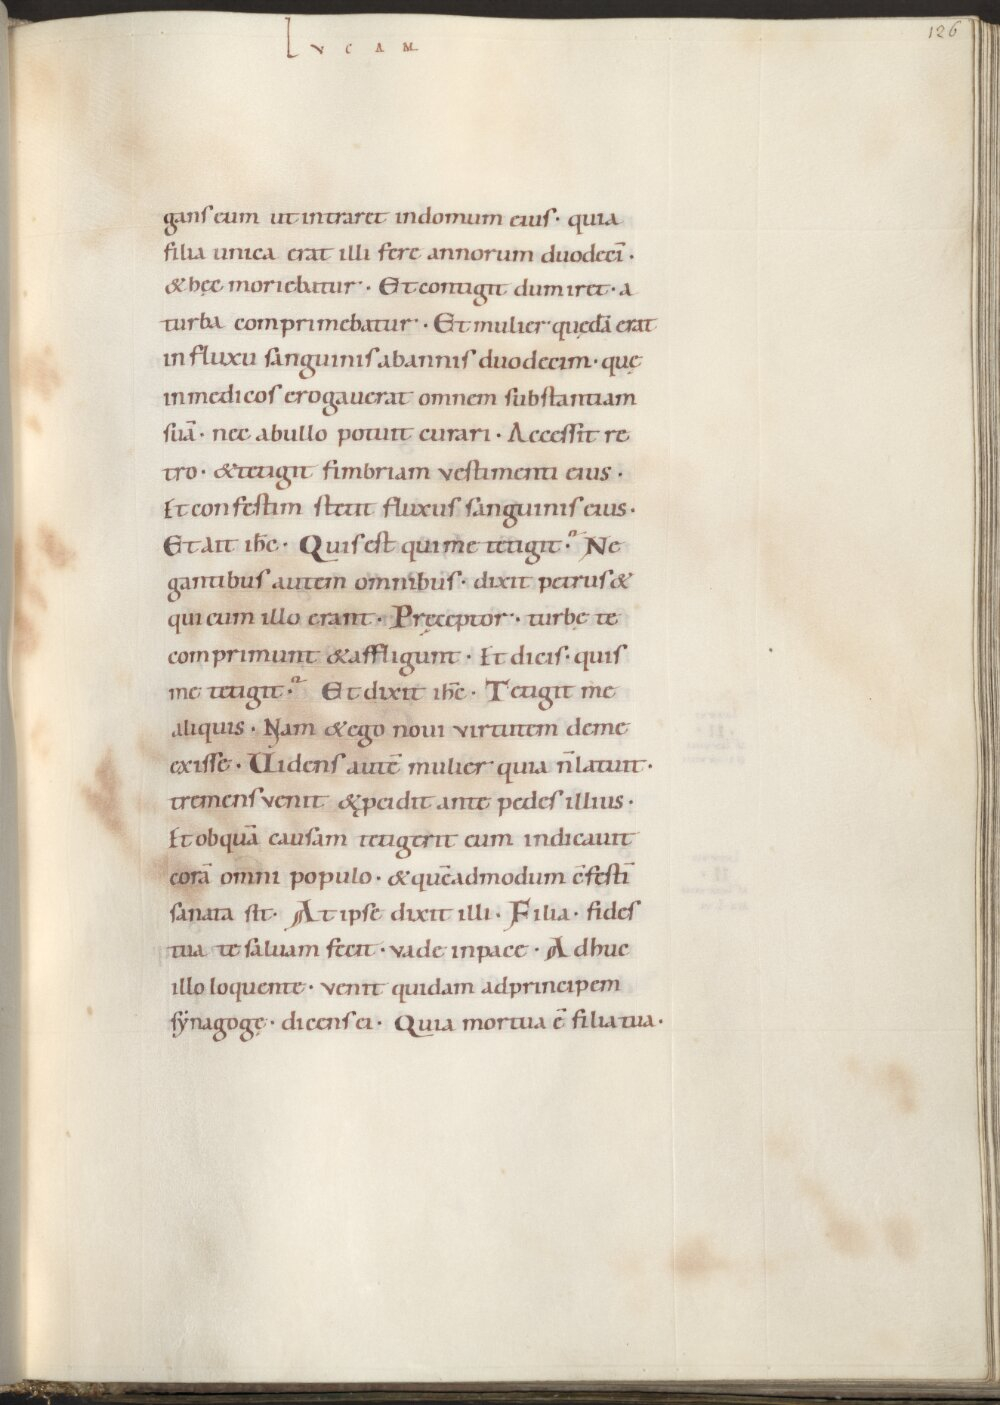 LVCAM
126
gans eum ut intraret indomum eius· quia
filia unica erat illi fere annorum duodecī·
& hęc moriebatur· Et contigit dum iret· a
turba comprimebatur· Et mulier quędā erat
in fluxu sanguinis abannis duodecim· quę
inmedicos erogauerat omnem substantiam
suā· nec abullo potuit curari· Accessit re
tro· &tetigit fimbriam vestimenti eius·
Et confestim stetit fluxus sanguinis eius·
Et ait ih̄c· Quis est qui me tetigit? Ne
gantibus autem omnibus· dixit petrus &
qui cum illo erant· Pręceptor· turbę te
comprimunt &affligunt· Et dicis· quis
me tetigit? Et dixit ih̄c· Tetigit me
aliquis· Nam &ego noui virtutem deme
exisse· Uidens autē mulier quia n̄latuit·
tremens venit &p̱cidit ante pedes illius·
Et obquā causam tetigerit eum indicauit
corā omni populo· &quēadmodum c̄festī
sanata sit· At ipse dixit illi· Filia· fides
tua te saluam fecit· vade inpace· Adhuc
illo loquente· venit quidam adprincipem
sẏnagogę· dicens ei· Quia mortua ē filia tua·